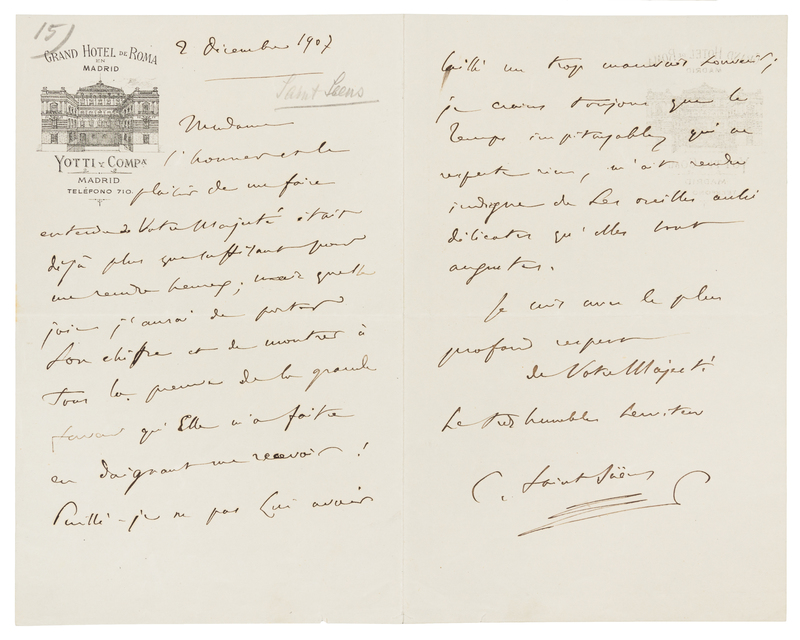 15)
GRAND HOTEL DE ROMA
EN
MADRID
YOTTI Y COMPA
MADRID
TELÉFONO 710.
2 dicembre 1907
Saint Saens
Madame
l'honneur et le
plaisir de me faire
entendre de Votre Majesté était
déjà plus que suffisant pour
me rendre heureux; mais quelle
joie j'aurai de porter
Son chiffre et de montrer à
Tous la preuve de la grande
faveur qu'Elle m'a faite
en daignant me recevoir !
Puissé-je ne pas Lui avoir
laissé un trop mauvais souvenir;
je crains toujours que le
Temps impitoyable, qui ne
respecte rien, m'ait rendu
indigne de Ses oreilles aussi
délicates qu'elles sont
augustes.
Je suis avec le plus
profond respect
de Votre Majesté
Le très humble Serviteur
C. Saint-Saëns